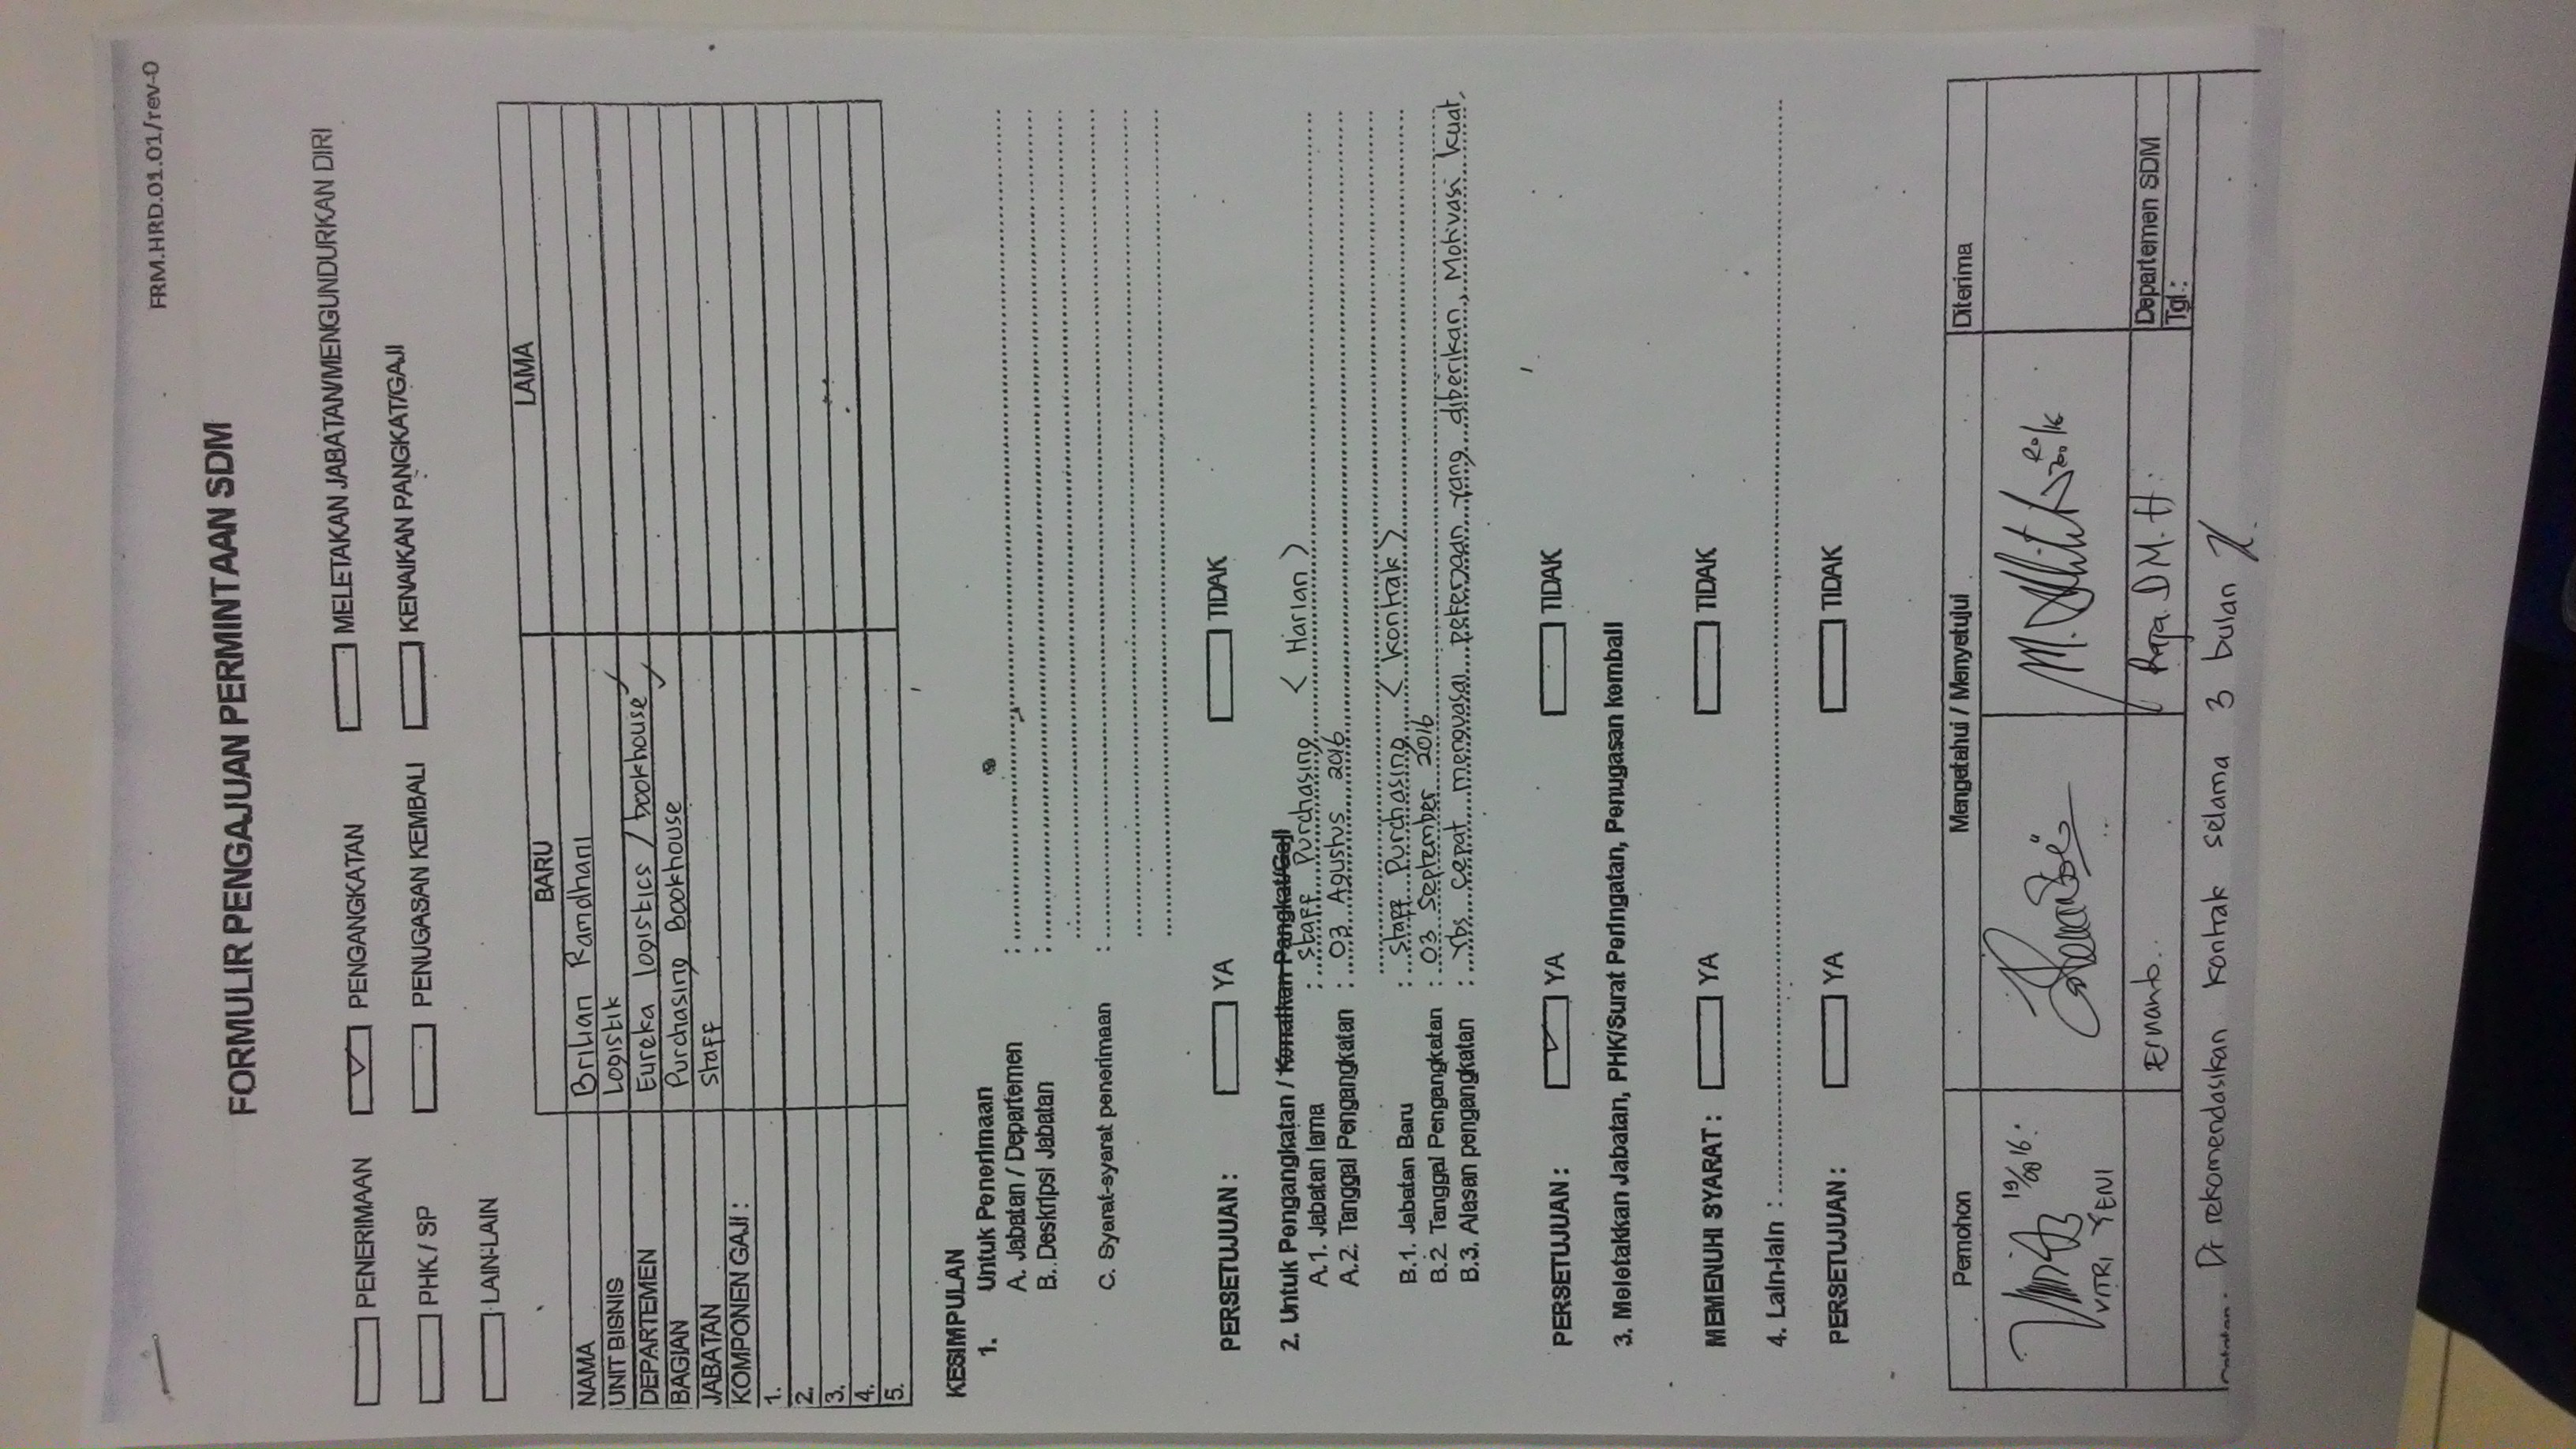 FRM.HRD.01.01/rev-0
FORMULIR PENGAJUAN PERMINTAAN SDM
PENERIMAAN PENGANGKATAN MELETAKAN JABATAN/MENGUNDURKAN DIRI
PHK / SP PENUGASAN KEMBALI KENAIKAN PANGKAT/GAJI
LAIN-LAIN
BARU LAMA
NAMA Brilian Ramdhani
UNIT BISNIS Logistik
DEPARTEMEN Eureka logistics / bookhouse
BAGIAN Purchasing Bookhouse
JABATAN Staff
KOMPONEN GAJI :
1.
2.
3.
4.
5.
KESIMPULAN
1. Untuk Penerimaan
A. Jabatan / Departemen :
B. Deskripsi Jabatan :
C. Syarat-syarat penerimaan :
PERSETUJUAN : YA TIDAK
2. Untuk Pengangkatan / Kenaikan Pangkat/Gaji
A.1. Jabatan lama : Staff Purchasing < Harian >
A.2. Tanggal Pengangkatan : 03 Agustus 2016
B.1. Jabatan Baru : Staff Purchasing < Kontrak >
B.2 Tanggal Pengangkatan : 03 September 2016
B.3. Alasan pengangkatan : Ybs cepat menguasai pekerjaan yang diberikan, Motivasi kuat,
PERSETUJUAN : YA TIDAK
3. Meletakkan Jabatan, PHK/Surat Peringatan, Penugasan kembali
MEMENUHI SYARAT : YA TIDAK
4. Lain-lain :
PERSETUJUAN : YA TIDAK
Pemohon Mengetahui / Menyetujui Diterima
19/08 16.
VITRI YENI
Ernanto. DM. H Departemen SDM
Tgl :
Di rekomendasikan Kontrak selama 3 bulan